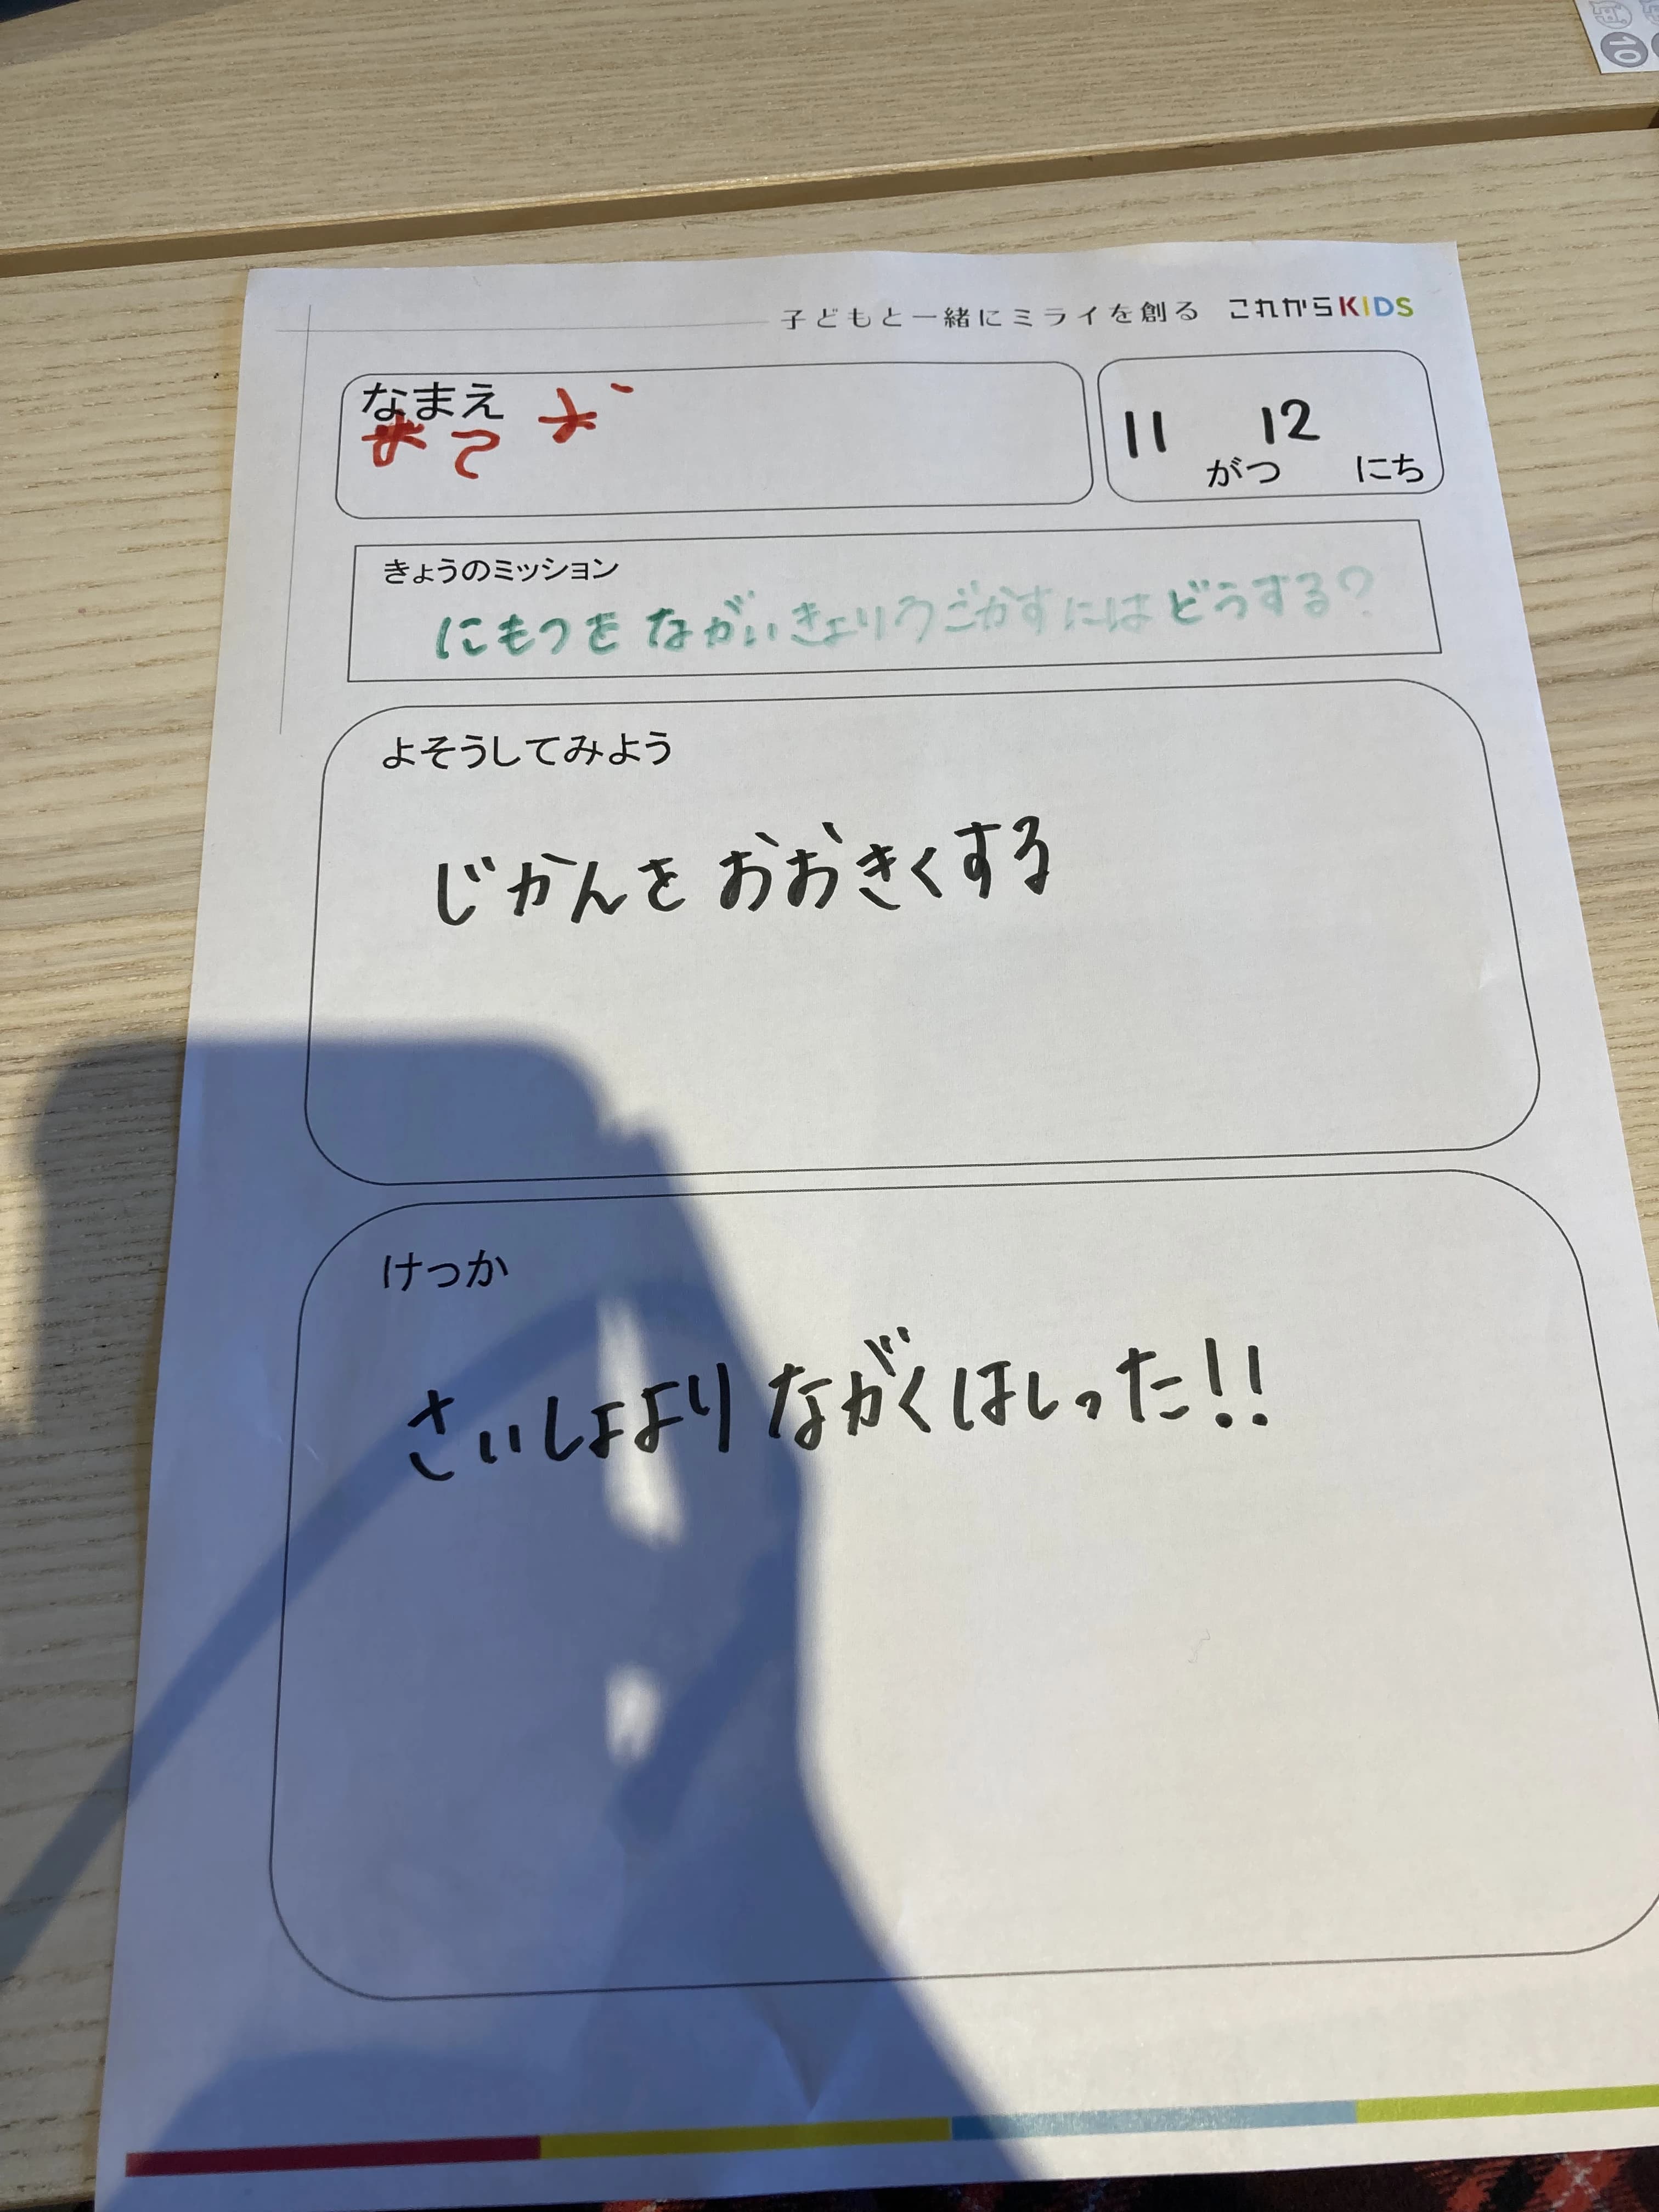 10
子どもと一緒にミライを創る これからKIDS
なまえ
11 がつ 12 にち
きょうのミッション
にもつを ながいきょりうごかすには どうする?
よそうしてみよう
じかんを おおきくする
けっか
さいしょより ながくはしった!!